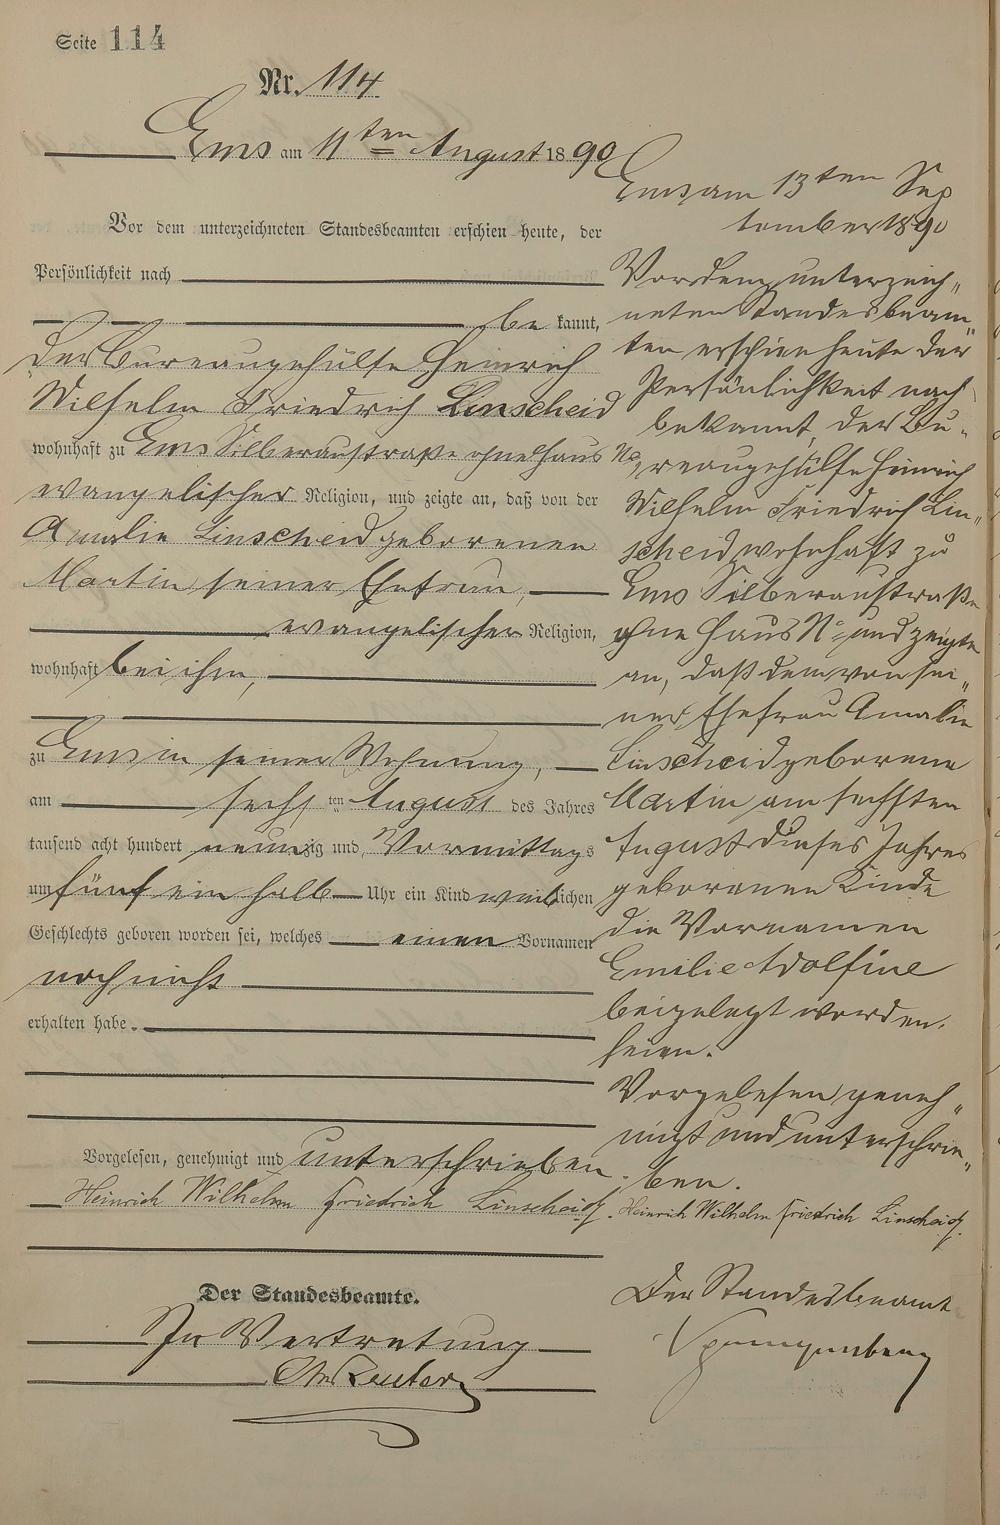 Seite 114
Nr. 114
Ems am 11ten August 1890
Vor dem unterzeichneten Standesbeamten erschien heute, der
Persönlichkeit nach
bekannt,
der Bureaugehülfe Heinrich
Wilhelm Friedrich Linscheid
wohnhaft zu Ems Silberaustraße ohne Haus No,
evangelischer Religion, und zeigte an, daß von der
Amalie Linscheid geborenen
Martin seiner Ehefrau,
evangelischer Religion,
wohnhaft bei ihm,
zu Ems in seiner Wohnung,
am sechsten August des Jahres
tausend acht hundert neunzig und Vormittags
um fünf ein halb Uhr ein Kind weiblichen
Geschlechts geboren worden sei, welches einen Vornamen
noch nicht
erhalten habe.
Vorgelesen, genehmigt und unterschrieben.
Heinrich Wilhelm Friedrich Linscheid.
Der Standesbeamte.
In Vertretung
Reuter
Ems am 13ten Sep
tember 1890
Vor dem unterzeich„
neten Standesbeam„
ten erschien heute der
Persönlichkeit nach
bekannt, der Bu-
reaugehülfe Heinrich
Wilhelm Friedrich Lin„
scheid wohnhaft zu
Ems Silberaustraße
ohne Haus No und zeigte
an, daß dem von sei„
ner Ehefrau Amalie
Linscheid geborene
Martin am sechsten
August dieses Jahres
geborenen Kinde
die Vornamen
Emilie Adolfine
beigelegt worden
seien.
Vorgelesen geneh„
migt und unterschrie„
ben.
Heinrich Wilhelm Friedrich Linscheid.
Der Standesbeamte
Spangenberg